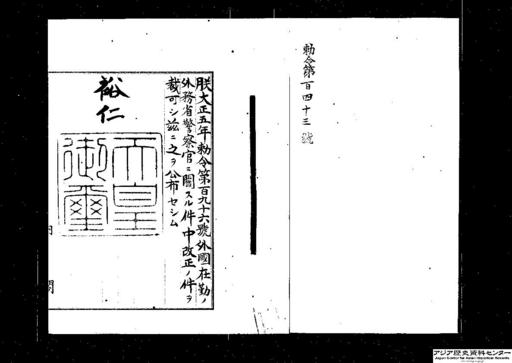 勅令第百四十三號
朕大正五年勅令第百九十六號外國在勤ノ
外務省警察官ニ關スル件中改正ノ件ヲ
裁可シ茲ニ之ヲ公布セシム
裕仁
天皇
御璽
内閣
アジア歴史資料センター
Japan Center for Asian Historical Records